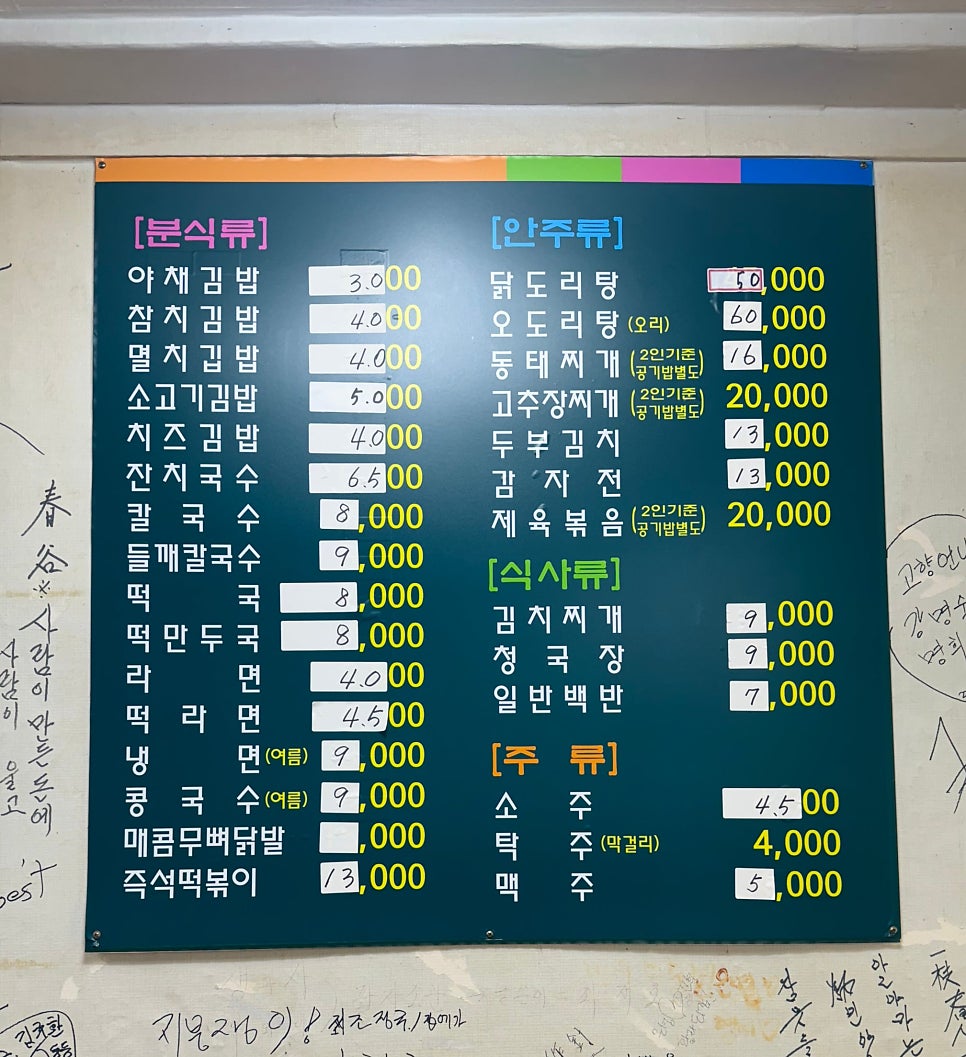 [분식류]
야채김밥 3.000
참치김밥 4.000
멸치김밥 4.000
소고기김밥 5.000
치즈김밥 4.000
잔치국수 6.500
칼국수 8,000
들깨칼국수 9,000
떡국 8,000
떡만두국 8,000
라면 4.000
떡라면 4.500
냉면(여름) 9,000
콩국수(여름) 9,000
매콤무뼈닭발 ,000
즉석떡볶이 13,000
[안주류]
닭도리탕 50,000
오도리탕(오리) 60,000
동태찌개(2인기준 공기밥별도) 16,000
고추장찌개(2인기준 공기밥별도) 20,000
두부김치 13,000
감자전 13,000
제육볶음(2인기준 공기밥별도) 20,000
[식사류]
김치찌개 9,000
청국장 9,000
일반백반 7,000
[주류]
소주 4.500
탁주(막걸리) 4,000
맥주 5,000
春谷
※사람이 만든 돈에
사람이 울고
고향언니
강명수
명희